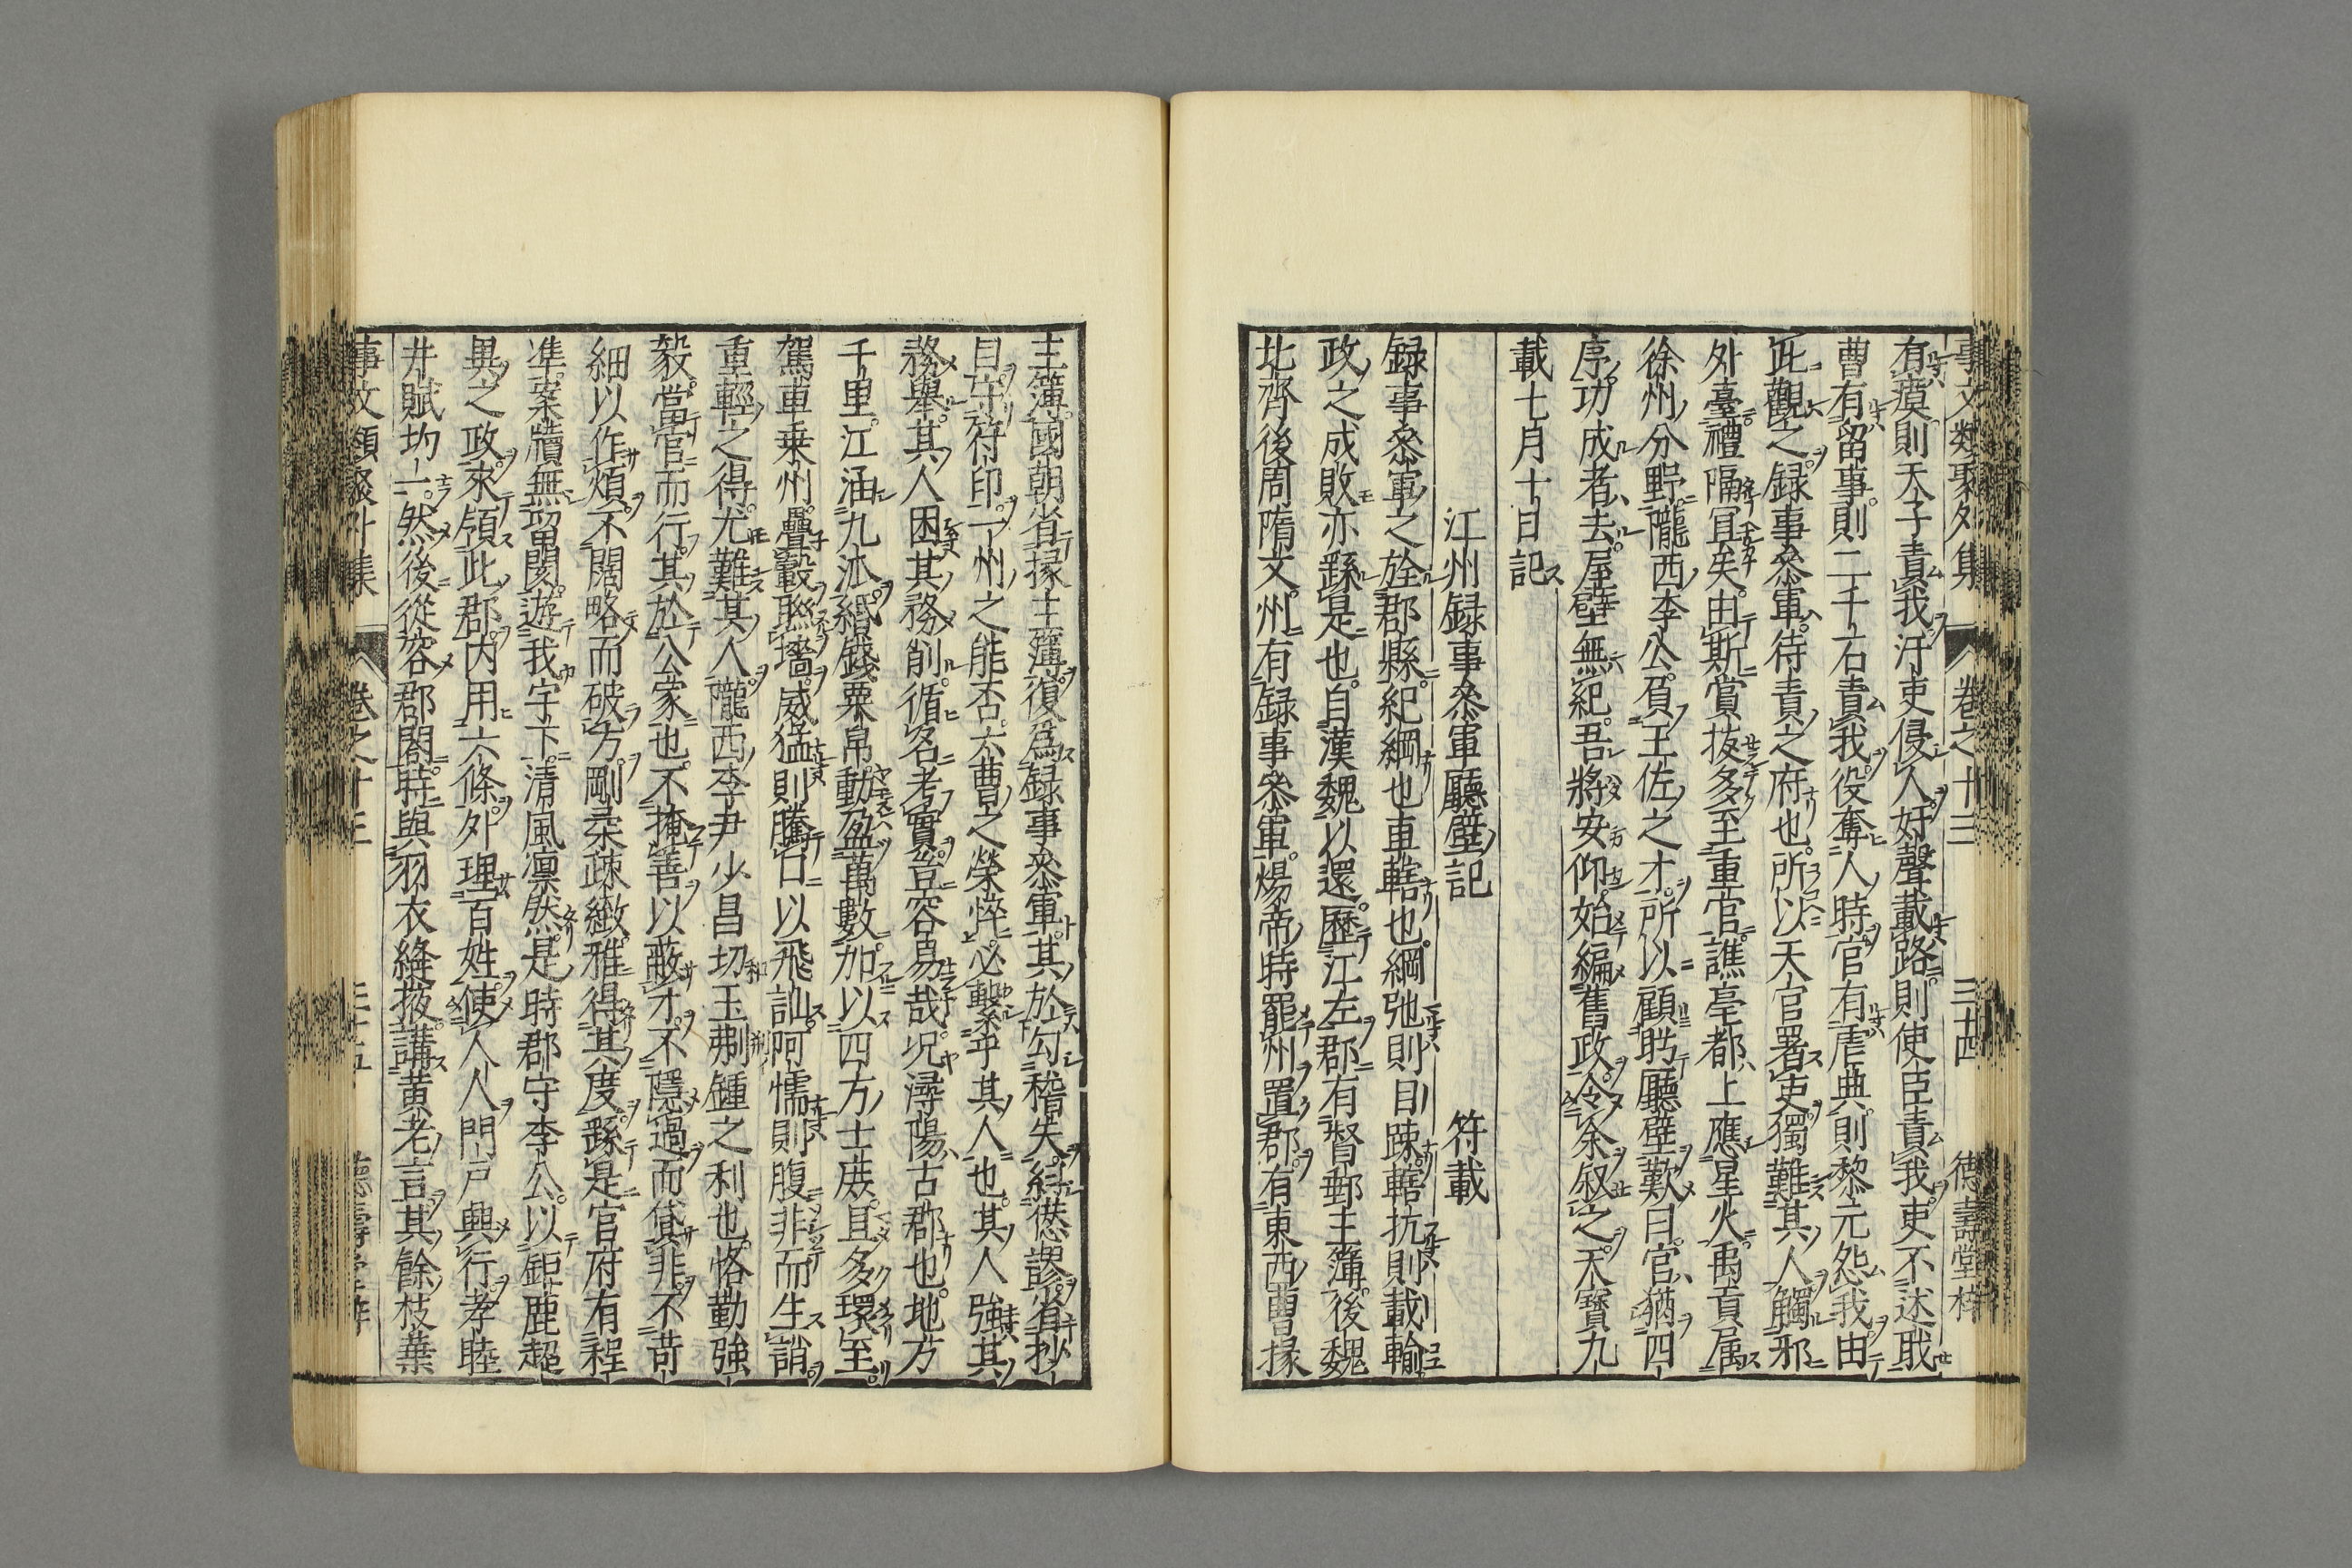 事文類聚外集 卷之十三 三十四 德壽堂梓
有瘼則天子責我汙吏侵人奸聲載路則使臣責我吏不述職
曹有留事則二千石責我役奪人時官有虐典則黎元怨我由
此觀之録事叅軍待責之府也所以天官署吏獨難其人觸邪
外臺禮隔冝矣由斯賞拔多至重官譙亳都上應星火禹貢属
徐州分野隴西李公負王佐之才所以顧眄廳壁歎曰官猶四
序功成者去屋壁無紀吾將安仰始編舊政令余叙之天寶九
載七月十日記
江州録事叅軍廳壁記 符載
録事叅軍之於郡縣紀綱也車轄也綱弛則目踈轄抗則載輸
政之成敗亦繇是也自漢魏以還歷江左郡有督郵主簿後魏
北齊後周隋文州有録事叅軍煬帝時罷州置郡有東西曹掾
主簿國朝省掾主簿復爲録事叅軍其於勾稽失糾愆謬省抄
目守符印一州之能否六曹之榮悴必繫乎其人也其人強其
務舉其人困其務削循名考實豈容易哉况潯陽古郡也地方
千里江涵九派緡錢粟帛動盈萬數加以四方士庻且多環至
駕車乗州疊轂聯墻威猛則騰口以飛訕阿懦則腹非而生誚
重輕之得尤難其人隴西李尹少昌切玉剸鍾之利也恪勤強
毅當官而行其於公家也不掩善以蔽才不隱過而貸非不苛
細以作煩不闊略而破方剛柔疎緻雅得其度繇是官府有程
凖案牘無留閡遊我宇下清風凛然是時郡守李公以鉅鹿超
異之政來領此郡内用六條外理百姓使人人門戸興行孝睦
井賦均一然後從容郡閤時與羽衣縫掖講黄老言其餘枝葉
事文類聚外集 卷之十三 三十五